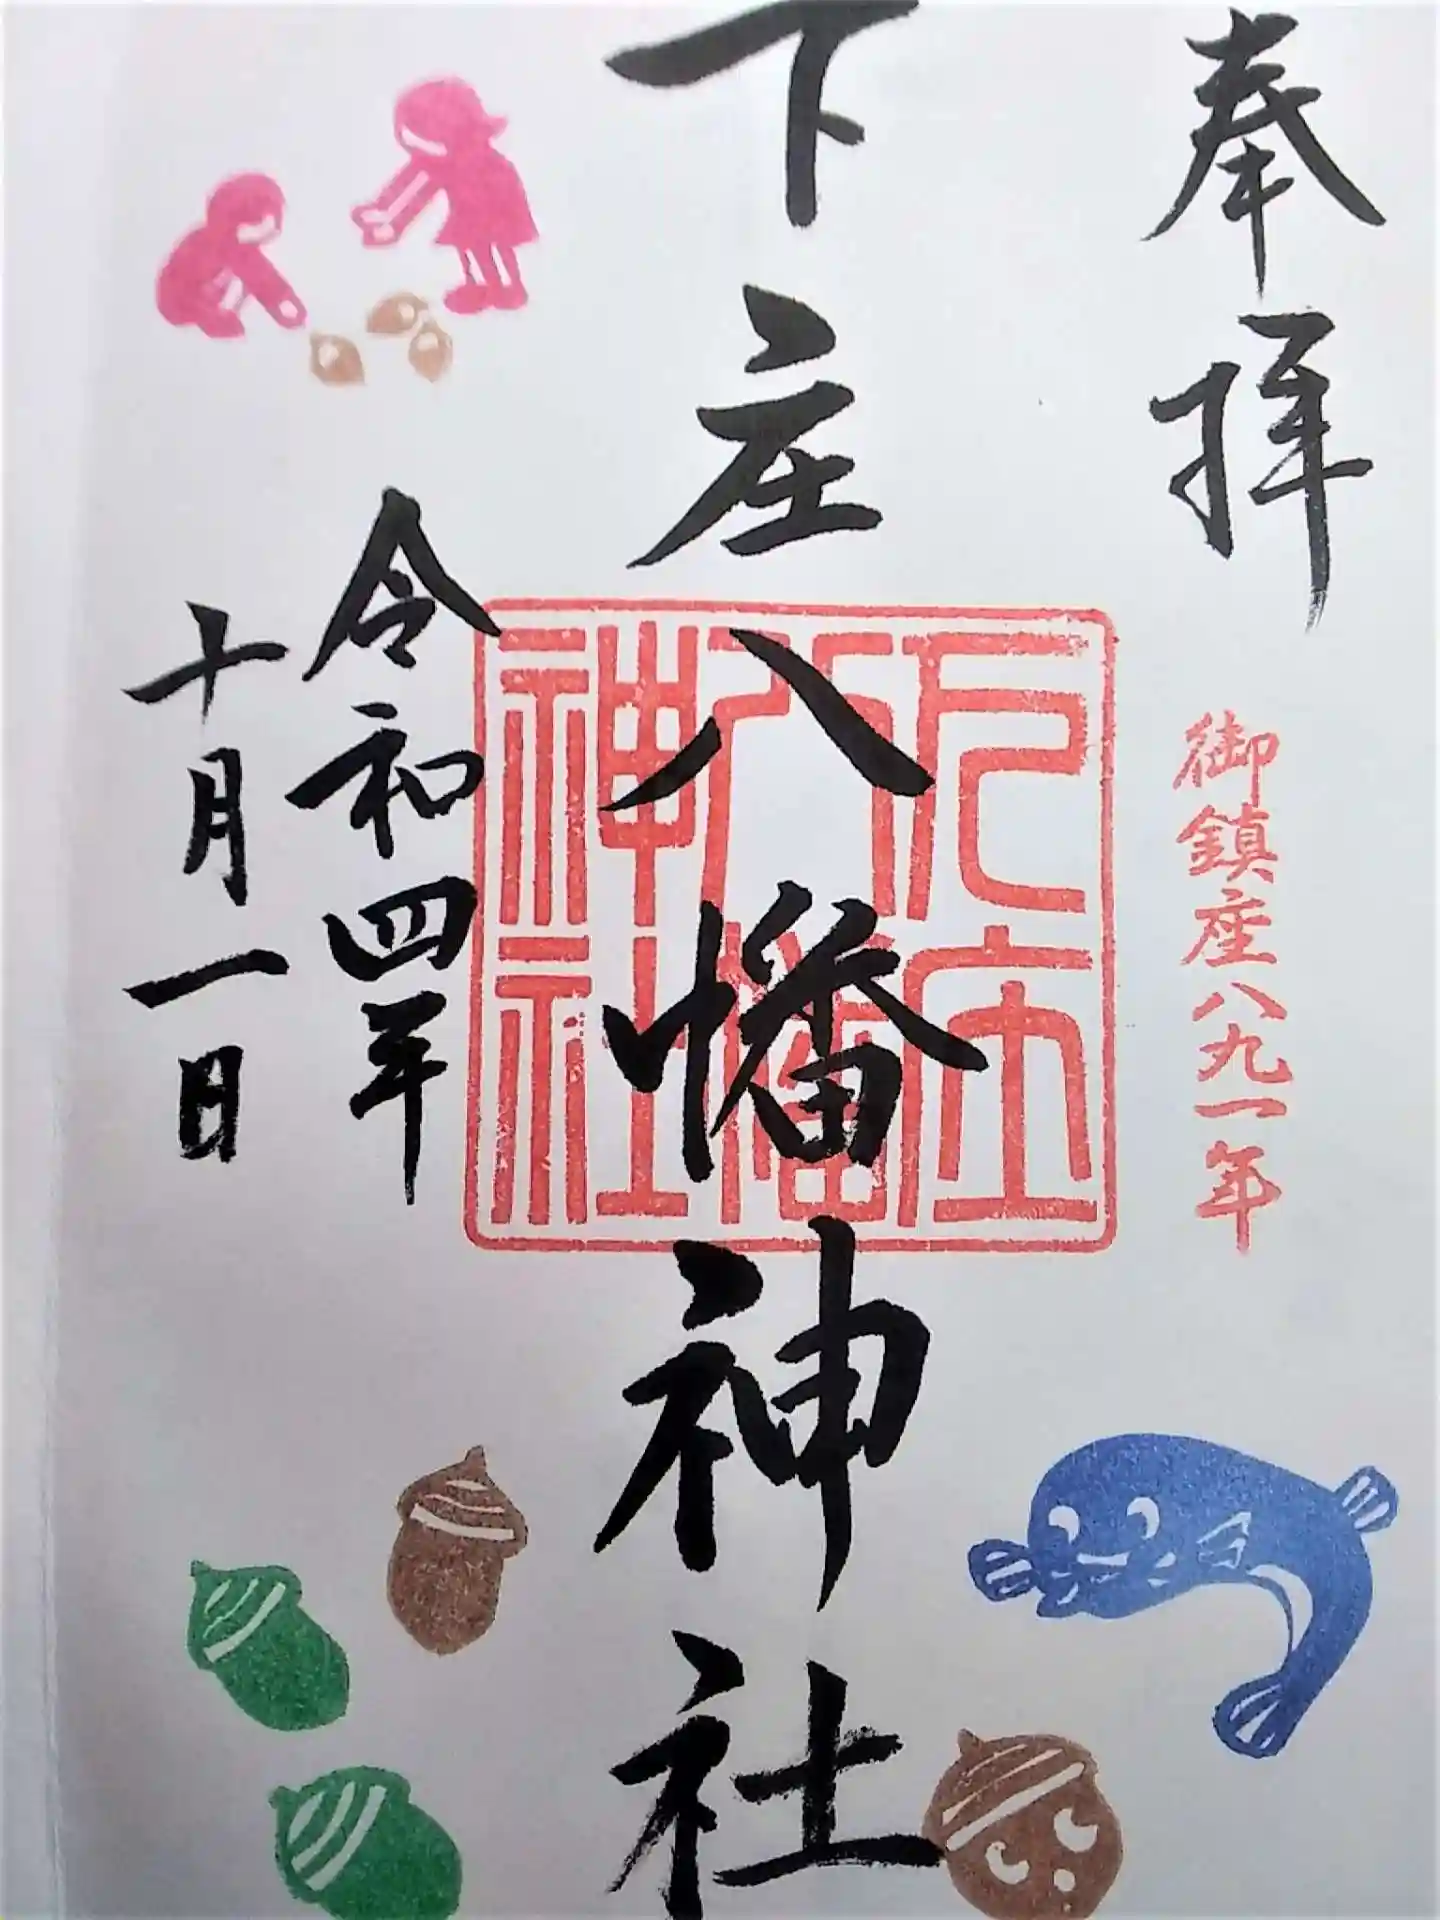 奉拝
御鎮座八九一年
下庄八幡神社
下庄
八幡
神社
令和四年
十月一日